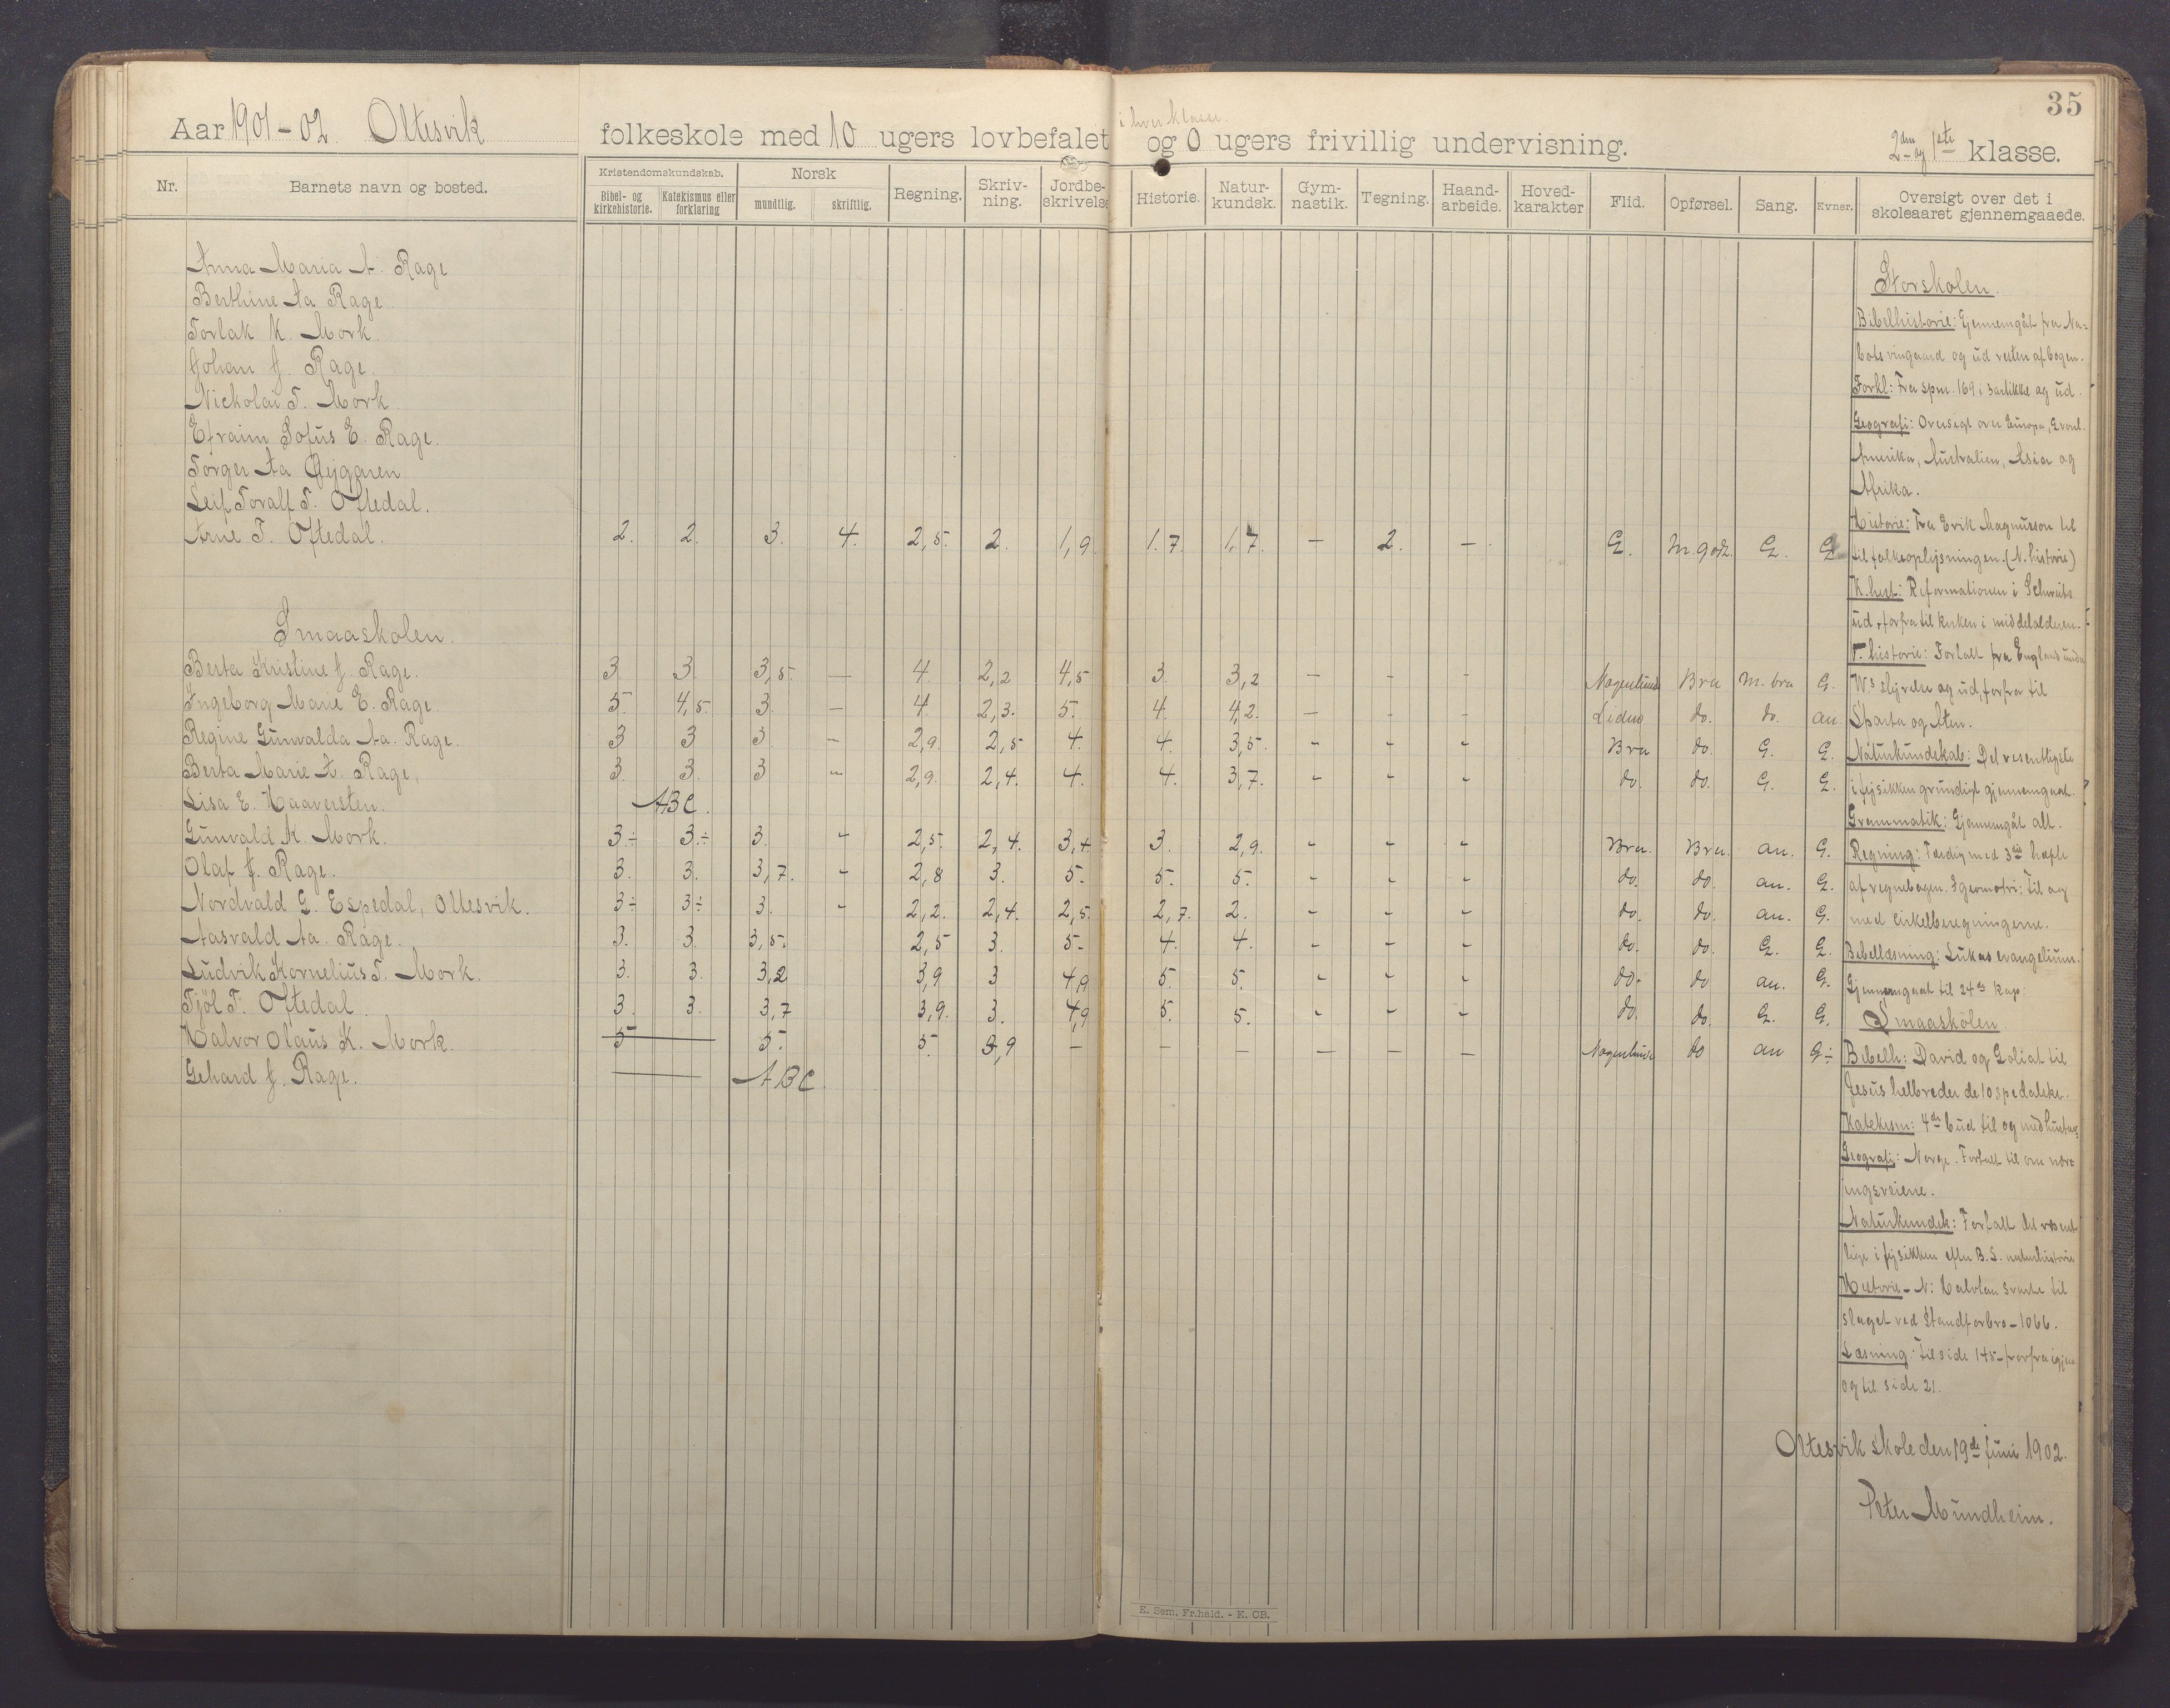 35
Aar 1901-02 Oltesvik folkeskole med 10 ugers lovbefalet i hver klasse. og 0 ugers frivillig undervisning. 2den og 1ste klasse.
Nr. Barnets navn og bosted. Kristendomskundskab. Norsk Regning. Skriv-ning. Jordbe-skrivelse Historie. Natur-kundsk. Gym-nastik. Tegning. Haand-arbeide. Hoved-karakter Flid. Opførsel. Sang. Evner. Oversigt over det i skoleaaret gjennemgaaede.
Bibel- og kirkehistorie. Katekismus eller forklaring mundtlig. skriftlig.
Anna Maria A. Rage
Berthine Aa Rage
Torlak K. Mork.
Johan J. Rage.
Nickolai T. Mork.
Efraim Sofus E. Rage.
Torger Aa
Leif Toralf T. Oftedal.
Arne T. Oftedal. 2. 2. 3. 4. 2,5. 2. 1,9 1.7. 1,7. - 2. - G. M.god. G. G.
Smaaskolen.
Berta Kristine J. Rage. 3 3 3,5. - 4 2,2 4,5 3. 3,2 - - - Nogenlunde Bra M. bra G.
Ingeborg Marie E. Rage 5. 4,5. 3. - 4 2,3. 5. 4. 4,2. - - - do. do. an.
Regine Gunvalda Aa. Rage. 3 3 3 - 2,9. 2,5 4. 4. 3,5. - - - Bra do. G. G.
Berta Marie A. Rage, 3. 3. 3 - 2,9. 2,4. 4. 4. 3,7. - - - do. do. G. G.
Lisa E. Haaversten. ABC.
Gunvald K. Mork. 3÷ 3÷ 3. - 2,5. 2,4. 3,4 3. 2,9. - - - Bra. Bra. an. G.
Olaf J. Rage. 3. 3. 3,7. - 2,8 3. 5. 5. 5. - - - do. do. an. G.
Nordvald G. Espedal, Oltesvik. 3÷ 3÷ 3. - 2,2. 2,4. 2,5. 2,7. 2. - - - do. do. an. G.
Aasvald Aa. Rage. 3. 3. 3,5. 2,5 3. 5. 4. 4. - - - do. do. G. G.
Ludvik Kornelius T. Mork. 3. 3. 3,2 3,9 3 4,9 5. 5. - - - do. do an. G.
Tjöl T. Oftedal. 3. 3. 3,7 3,9. 3. 4,9 5. 5. - - - do. do. G. G.
Halvor Olaus K. Mork. 5 5. 5. 3,9 - - - - - - Nogenlunde do an G÷
Gehard J. Rage. ABC.
Storskolen.
Bibelhistorie: Gjennemgåt fra Na-
bots vingaard og ud resten af bogen.
Forkl: Fra spm. 169 i 3 artikkel og ud.
Geografi: Oversigt over Europa,
Amerika, Australien, Asia og
Afrika.
Historie: Fra Erik Magnusson til
til folkeoplysningen. (N. historie)
K. hist: Reformationen i Schweits
ud, forfra til kirken i middelalderen.
V. historie: Fortalt fra England under
W.s styrelse og ud, forfra til
Sparta og Aten.
Naturkundskab: Det væsentligste
i fysikken grundigt gjennemgaat.
Grammatik: Gjennemgåt alt.
Regning: Færdig med 3die hæfte
af regnebogen. I geometri: Til og
med cirkelberegningerne.
Bibellæsning: Lukas evangelium.
Gjennemgaat til 24de kap.
Smaaskolen
Bibelh: David og Goliat til
Jesus helbreder de 10 spedalske.
Katekism: 4de bud til og med
Geografi: Norge. Fortalt til om nær-
ingsveiene.
Naturkundsk: Fortalt det væsent
lige i fysikken efter B.S. naturhistorie
Historie - N: Halvdan svarte til
slaget ved Standforbro - 1066.
Læsning: til side 145 - forfra igjen
og til side 21.
Oltesvik skole den 19de juni 1902.
Peter Mundheim.
E. Sem, Fr.hald. - E. CB.